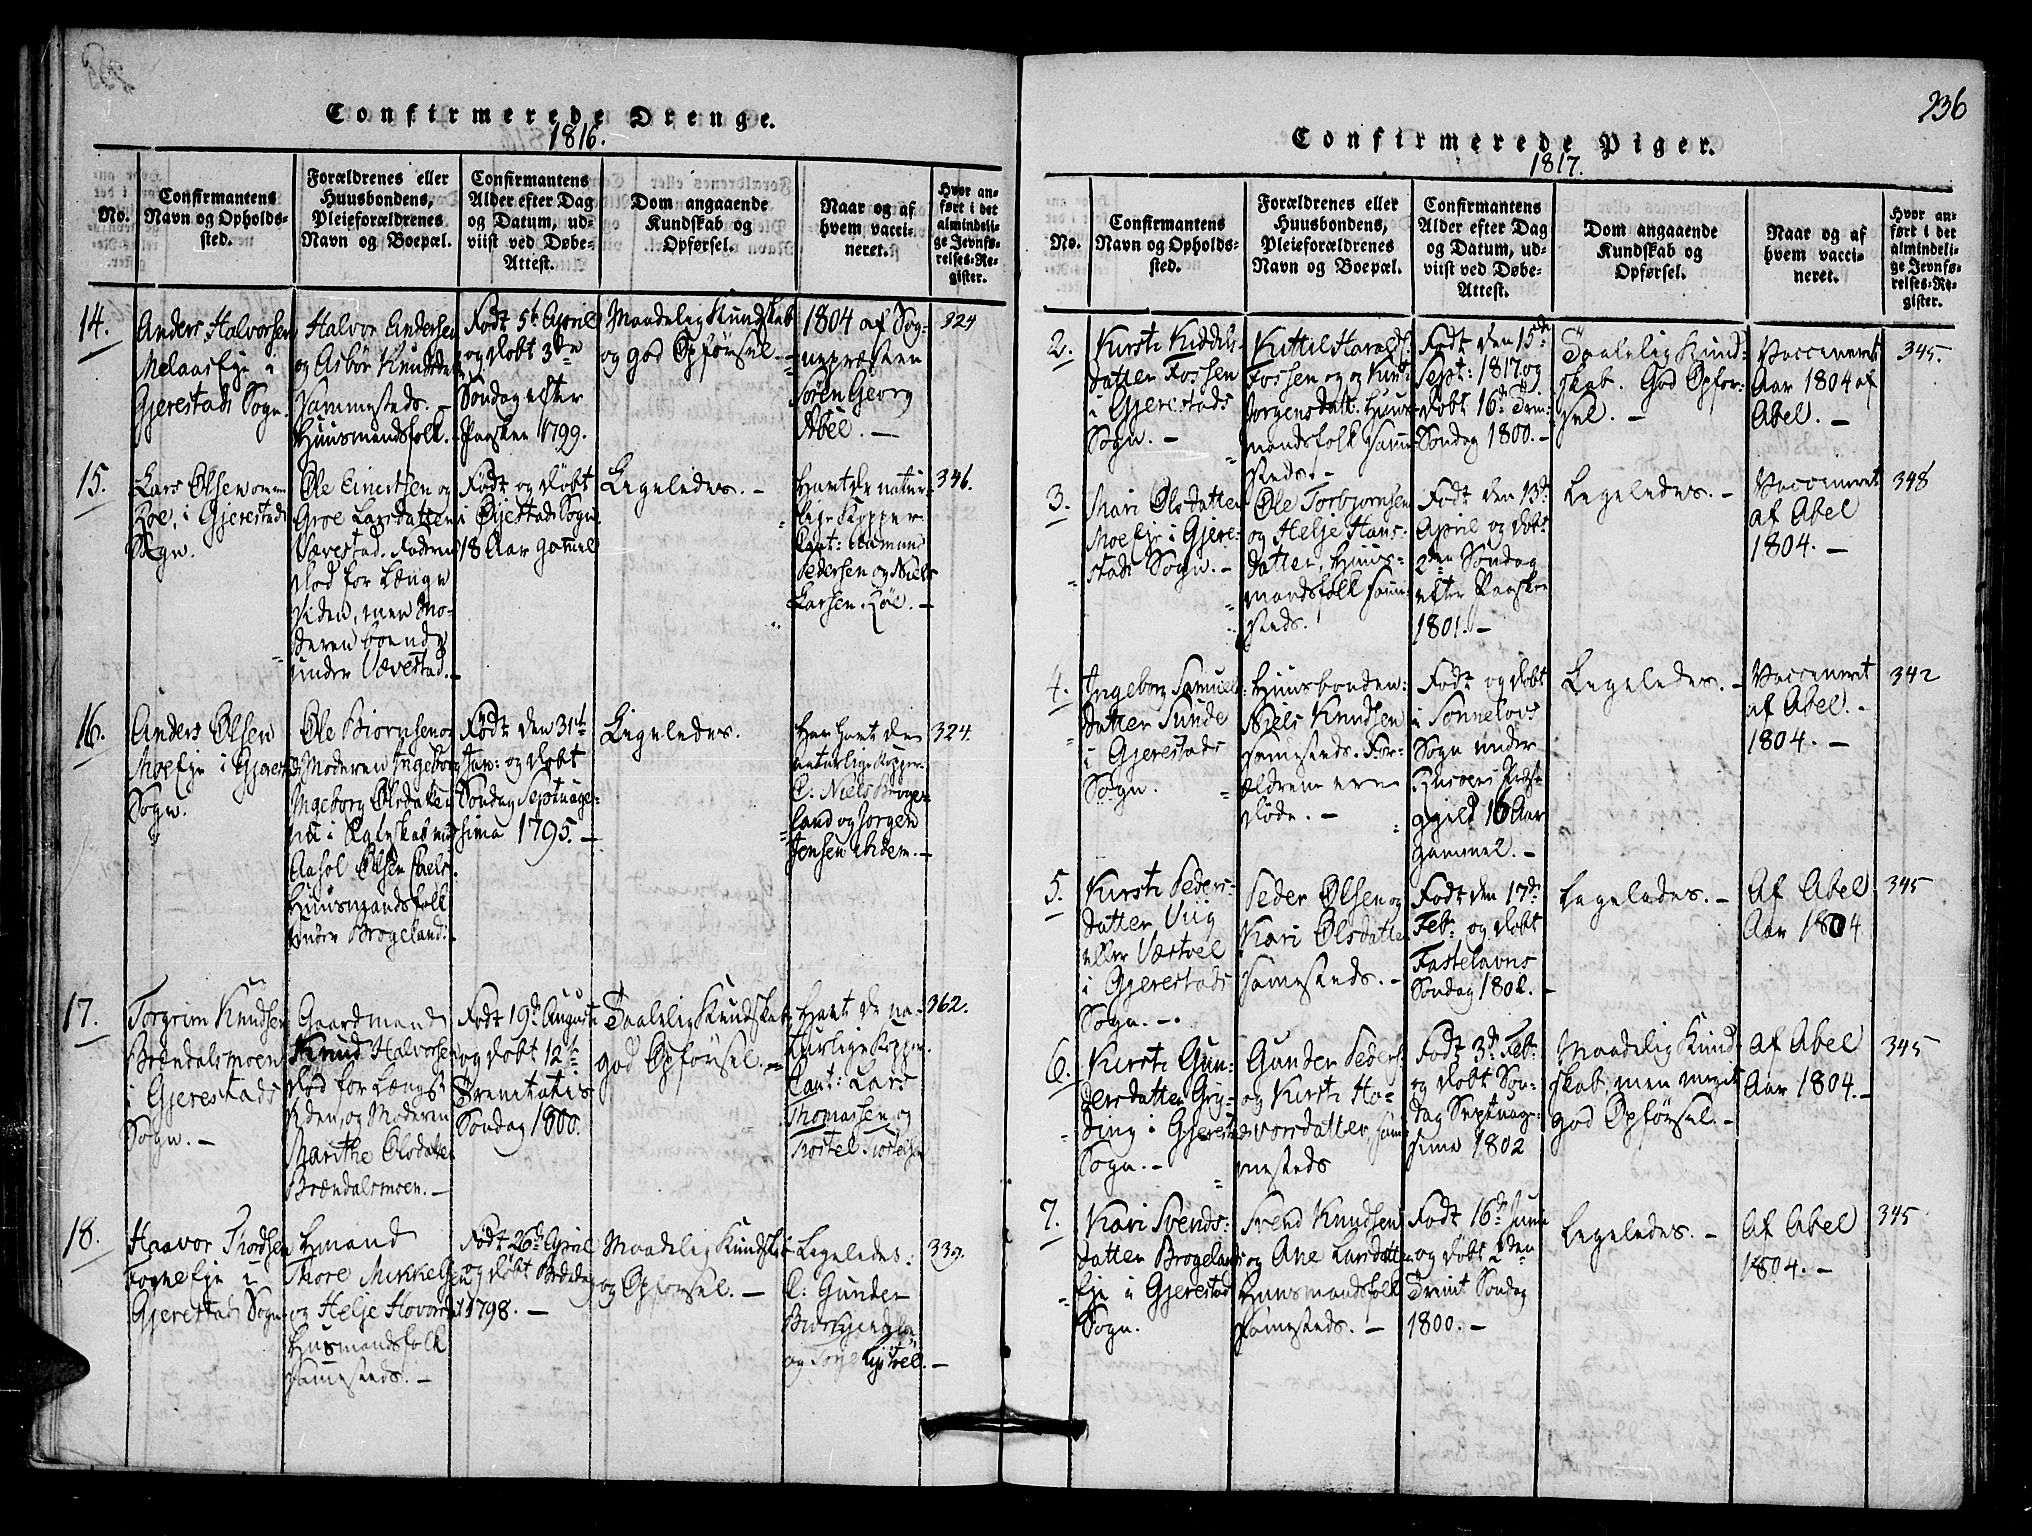 Confirmerede Drenge.
1816.
No.
Confirmantens
Navn og Opholds-
sted.
Forældrenes eller
Huusbondens,
Pleieforældrenes
Navn og Boepæl.
Confirmantens
Alder efter Dag
og Datum, ud-
viist ved Døbe-
Attest.
Dom angaaende
Kundskab og
Opførsel.
Naar og af
hvem vacci-
neret.
Hvor an-
ført i det
almindeli-
ge Jevnfø-
relses-Re-
gister.
14.
Anders Halvorsen
Melaas Eje i
Gjerestads Sogn.
Halvor Andersen
og Asbør Knudsdat
sammesteds. –
Huusmandsfolk.
Født 5t April
og døbt 3de
Søndag efter
Paaske 1799.
Maadelig Kundskab
og god Opførsel. –
1804 af Sog-
nepræsten
Søren Georg
Abel. –
324
15.
Lars Olsen
i Gjerestads
Sogn.
Ole Einertsen og
Groe Larsdatter
Vævestad. Faderen
død for længe
siden, men Mo-
deren boende
under Vævestad. –
Født og døbt
i Øijestads Sogn
18 Aar gammel
Ligeledes. –
Havt de natur-
lige Kopper.
Pedersen og Niels
Larsen
346.
16.
Anders Olsen
Moe Eje i Gjerest
Sogn.
Ole Biørnsen og
Moderen Ingeborg
Ingeborg Olsdatter
nu i Egteskab med
Olsen
Huusmandsfolk
Brogeland.
Født den 31t
Jan: og døbt
Søndag Septuage-
sima 1795. –
Ligeledes.
Har havt de
naturlige Kopper.
C: Niels Broge-
land og Jørgen
Jensen ibidem. –
324.
17.
Torgrim Knudsen
Brændalsmoen
i Gjerestads
Sogn. –
Gaardmand
Knud Halvorsen
død for længst
siden, og Moderen
Marithe Olsdatter
Brændalsmoen. –
Født 19d August
og døbt 12te
Trinitatis
Søndag 1800.
Taalelig Kundskab
god Opførsel. –
Havt de na-
turlige Kopper.
Lars
Thomassen og
362.
18.
Haavor Thordsen
Eje i
Gjerestads Sogn
Hmand
Thore Mikkelsen
og Helje Hovors
Husmandsfolk
sammesteds. –
Født 26d April
og døbt Bededag
1798. –
Maadelig Kundskab
og Opførsel. –
Ligeledes.
C: Gunder
og
339.
236
Confirmerede Piger.
1817.
No.
Confirmantens
Navn og Opholds-
sted.
Forældrenes eller
Huusbondens,
Pleieforældrenes
Navn og Boepæl.
Confirmantens
Alder efter Dag
og Datum, ud-
viist ved Døbe-
Attest.
Dom angaaende
Kundskab og
Opførsel.
Naar og af
hvem vacci-
neret.
Hvor an-
ført i det
almindeli-
ge Jevnfø-
relses-Re-
gister.
2.
Kirsti Kiddels-
datter Fossen
i Gjerestads
Sogn. –
Kittil Haralds.
Fossen og
Jørgensdatt. Huus-
mandsfolk samme-
steds. –
Født den 15de
Sept: 1817 og
døbt 16de Trin:
Søndag 1800. –
Taalelig Kund-
skab. God Opfør-
sel. –
Vaccineret
Aar 1804 af
Abel. –
345.
3.
Mari Olsdatter
Moe Eje i Gjere-
stads Sogn. –
Ole Torbjørnsen
og Helje Hans-
datter, Huus-
mandsfolk samme-
steds.
Født den 13de
April og døbt
2den Søndag
efter Paaske
1801. –
Ligeledes. –
Vaccineret
af Abel
1804. –
348
4.
Ingeborg Samuels-
datter Sunde
i Gjerestads
Sogn.
Huusbonden:
Niels Knudsen
sammesteds. For-
ældrene ere
døde. –
Født og døbt
i Sønneløvs
Sogn under
Præste-
gjeld 16 Aar
gammel. –
Ligeledes. –
Vaccineret
af Abel. –
1804. –
342
5.
Kirsti Peders-
datter Viig
eller Væstvel
i Gjerestads
Sogn. –
Peder Olsen og
Kari Olsdatter
sammesteds. –
Født den 17de
Feb: og døbt
Fastelavns
Søndag 1802. –
Ligeledes. –
Af Abel
Aar 1804
345
6.
Kirsti Gun-
dersdatter Gry-
ding i Gjerest
Sogn. –
Gunder Peders:
og Kirsti Ha-
vorsdatter, sam-
mesteds
Født 3de Feb:
og døbt Søn-
dag Septuage-
sima 1802
Maadelig Kund-
skab, men meget
god Opførsel. –
Af Abel
Aar 1804. –
345
7.
Kari Svends-
datter Brogelands
Eje i Gjerestad
Sogn.
Svend Knudsen
og Ane Larsdatter
Huusmandsfolk
sammesteds. –
Født 16de Juni
og døbt 2den
Trinit Søndag
1800. –
Ligeledes. –
Af Abel
1804. –
345